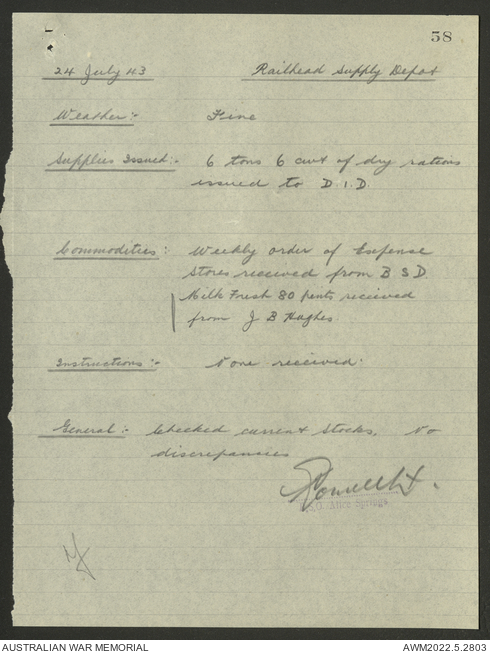 58
24 July 43 Railhead Supply Depot
Weather:- Fine
Supplies Issued:- 6 tons 6 cwt of dry rations
issued to D.I.D.
Commodities: Weekly order of Expense
Stores received from B S D.
Milk Fresh 80 pents received
from J B Hughes
Instructions:- None received.
General:- Checked current stocks. No
discrepancies
Alice Springs
AUSTRALIAN WAR MEMORIAL AWM2022.5.2803